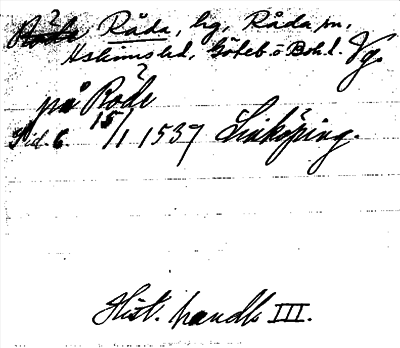 Råda, hg, Råda sn,
Askims hd, Göteb. o Boh. l. Vg.
på Röde
Sid. 6 15/1 1537 Linköping.
Hist. handl. III.